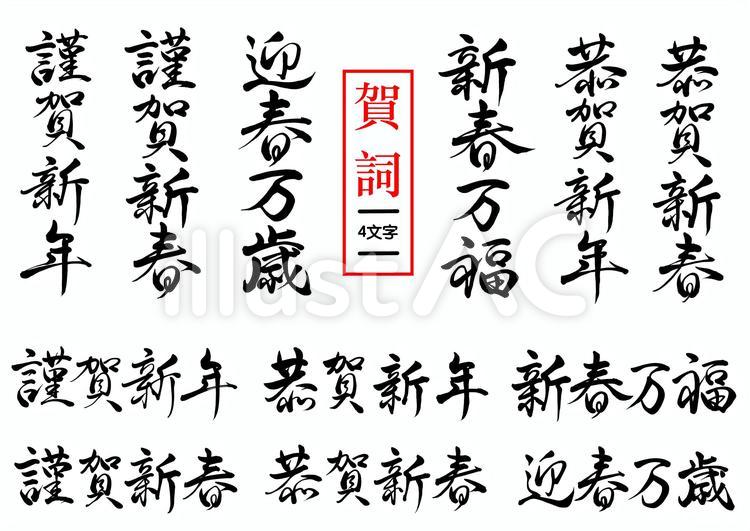 恭賀新春
恭賀新年
新春万福
賀詞
4文字
迎春万歳
謹賀新春
謹賀新年
謹賀新年 恭賀新年 新春万福
謹賀新春 恭賀新春 迎春万歳
illustAC